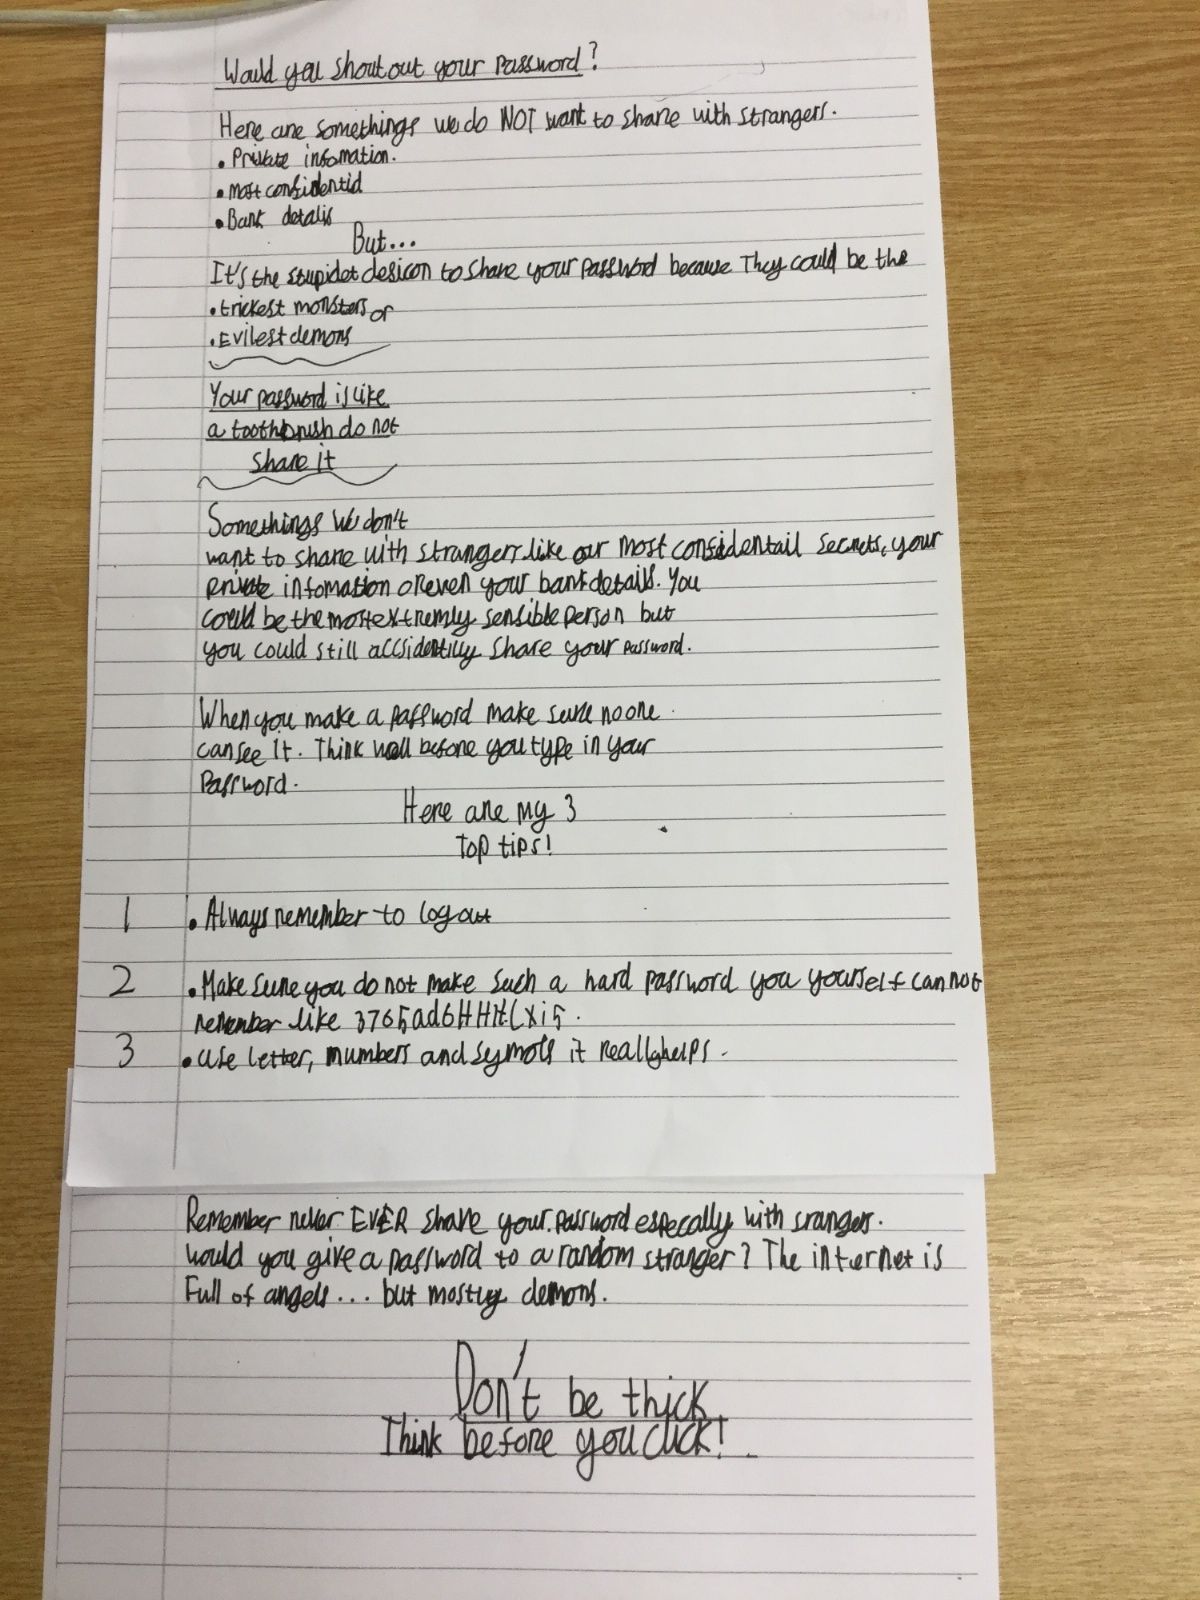 Would you shout out your password?
Here are somethings we do NOT want to share with strangers.
• Private infomation.
• most confidentid
• Bank detalis
But...
It's the stupidet desicon to share your password because They could be the
• trickest monsters or
• Evilest demons
Your password is like
a toothbrush do not
share it
Somethings we don't
want to share with strangers like our most confidentail secrets, your
private infomation or even your bank details. You
could be the most extremly sensible person but
you could still accsidentilly share your password.
When you make a password make sure no one
can see it. Think well before you type in your
Password.
Here are my 3
Top tips!
1 • Always remember to log out
2 • Make sure you do not make such a hard password you yourself can not
remember like 3765ad6HHHLXi5.
3 • use letter, mumbers and symols it really helps.
Remember never EVER share your password especally with srangers.
would you give a password to a random stranger? The internet is
Full of angels... but mostly demons.
Don't be thick
Think before you click!